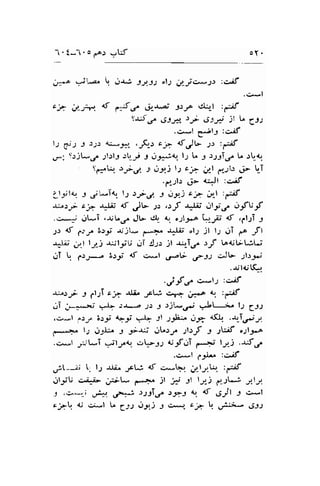 ۵۲۰ کتاب دهم ۶۰۵-۶۰۴
گفت: درست‌ترین راه روبرو شدن با مصائب همین
است.
گفتم: اینك هردو تصدیق می‌کنیم که بهترین جزء
روح ما از نیروی خرد پیروی می‌کند؟
گفت: واضح است.
گفتم: در حالی‌که جزء دیگر، پیوسته درد و رنج را
به‌یاد ما می‌آورد و ما را به‌شیون و فریاد وادار می‌سازد؟ پس
آیا حق داریم این جزء را زبون و بی‌خرد بنامیم؟
گفت: البته حق داریم.
گفتم: این جزء زبون و بی‌خرد را به‌آسانی و به‌انواع
گوناگون می‌توان تقلید کرد، در حالی که تقلید جزء خردمند
و آرام، که تقریباً همواره به یك حال می‌ماند، آسان نیست.
اگر هم آن را از راه تقلید مجسم سازند تودهٔ مردم که در
تماشاخانه‌ها گرد می‌آیند از درك آن ناتوانند زیرا این تقلید
نمودار حالت روحی خاصی است که تودهٔ مردم با آن
بیگانه‌اند.
گفت: راست می‌گوئی.
گفتم: به همین جهت شاعر مقلد جزء آرام و خردمند
روح را مخاطب نمی‌سازد و در صدد جلب تحسین آن
برنمی‌آید. بلکه چون منظور او جلب توجه تودهٔ مردم است،
همواره گفتار و کردار مردمان تندخو و متلون را مجسم
می‌کند. زیرا تجسم آن‌گونه روحیات به‌مراتب آسانتر است.
گفت: معلوم است.
گفتم: بنابراین بجاست که شاعر مقلد را با نقاش
برابر شماریم زیرا او نیز از مجسم ساختن حقیقت ناتوان
است و اثری که به وجود می‌آورد شبحی بیش نیست. و
روی سخنش با جزء پست و زبون روح ما است نه باجزء